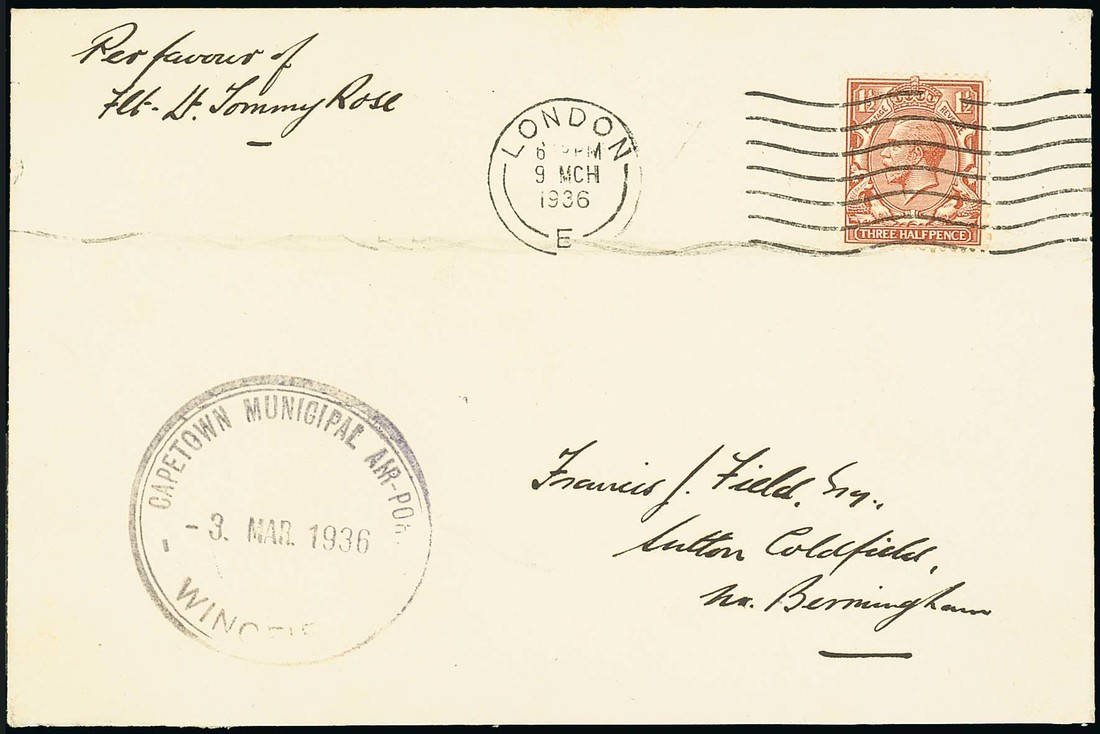 Per favour of
Flt-Lt. Tommy Rose
LONDON
PM
9 MCH
1936
E
1½ 1½
POSTAGE REVENUE
THREE HALFPENCE
CAPETOWN MUNICIPAL AIR-POR
- 3. MAR. 1936
Francis J. Field, Esq.,
Sutton Coldfield,
Nr. Bermingham